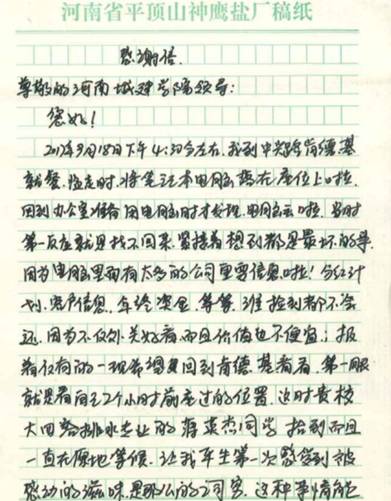 河南省平顶山神鹰盐厂稿纸
感谢信
尊敬的河南城建学院领导：
您好！
2012年9月18日下午4:30分左右，我到中兴路肯德基
就餐，临走时，将笔记本电脑丢在座位上啦，
回到办公室准备用电脑时才发现，电脑丢啦，当时
第一反应就是找不回来，紧接着想到都是最坏的事，
因为电脑里面有太多的公司重要信息啦！分红计
划、客户信息、年终资里，等等，谁捡到都不会
还，因为不仅外关好看，而且价值也不便宜；报
着仅有的一线希望又回到肯德基看看，第一眼
就是看自己2个小时前座过的位置，这时贵校
大四给排水专业的 同学 拾到而且
一直在原地等候，让我平生第一次感受到被
感动的滋味是那么的 ，这种事情能